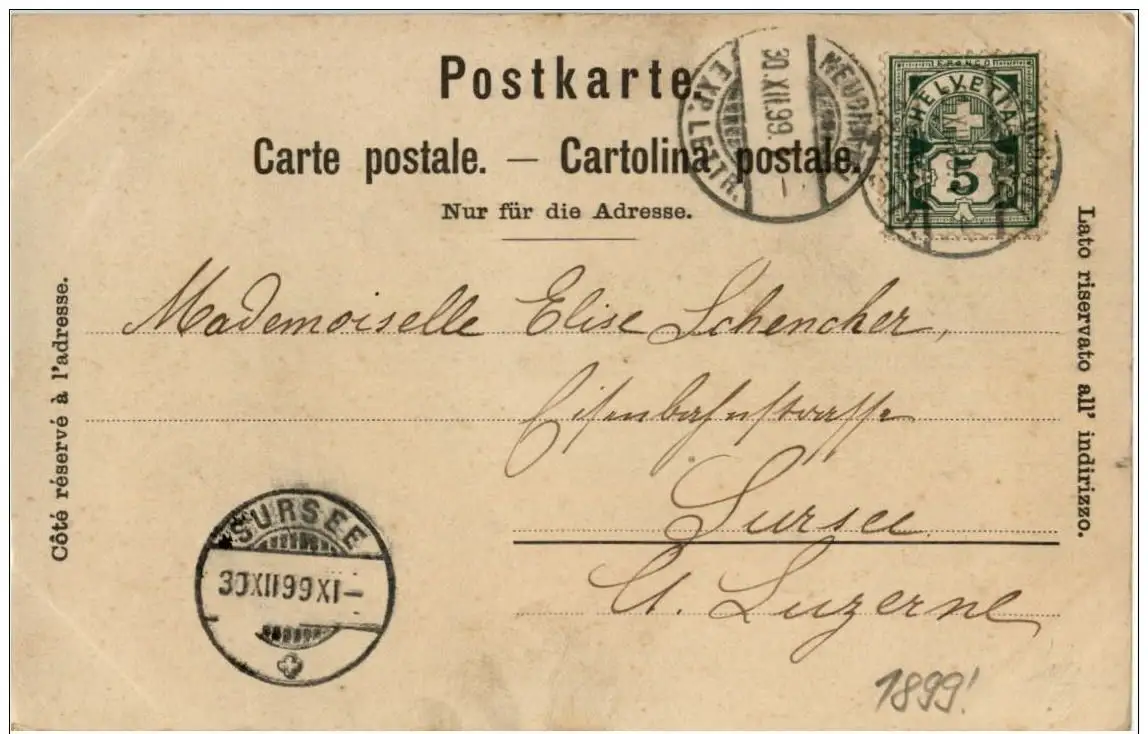 Postkarte.
Carte postale. — Cartolina postale.
Nur für die Adresse.
EXP. LETTR.
30.XII.99
FRANCO
HELVETIA
5
Côté réservé à l'adresse.
Lato riservato all' indirizzo.
Mademoiselle Elise Schencher,
Eisenbahnstrasse
Sursee
Ct. Luzerne
SURSEE
30XII99XI–
1899!